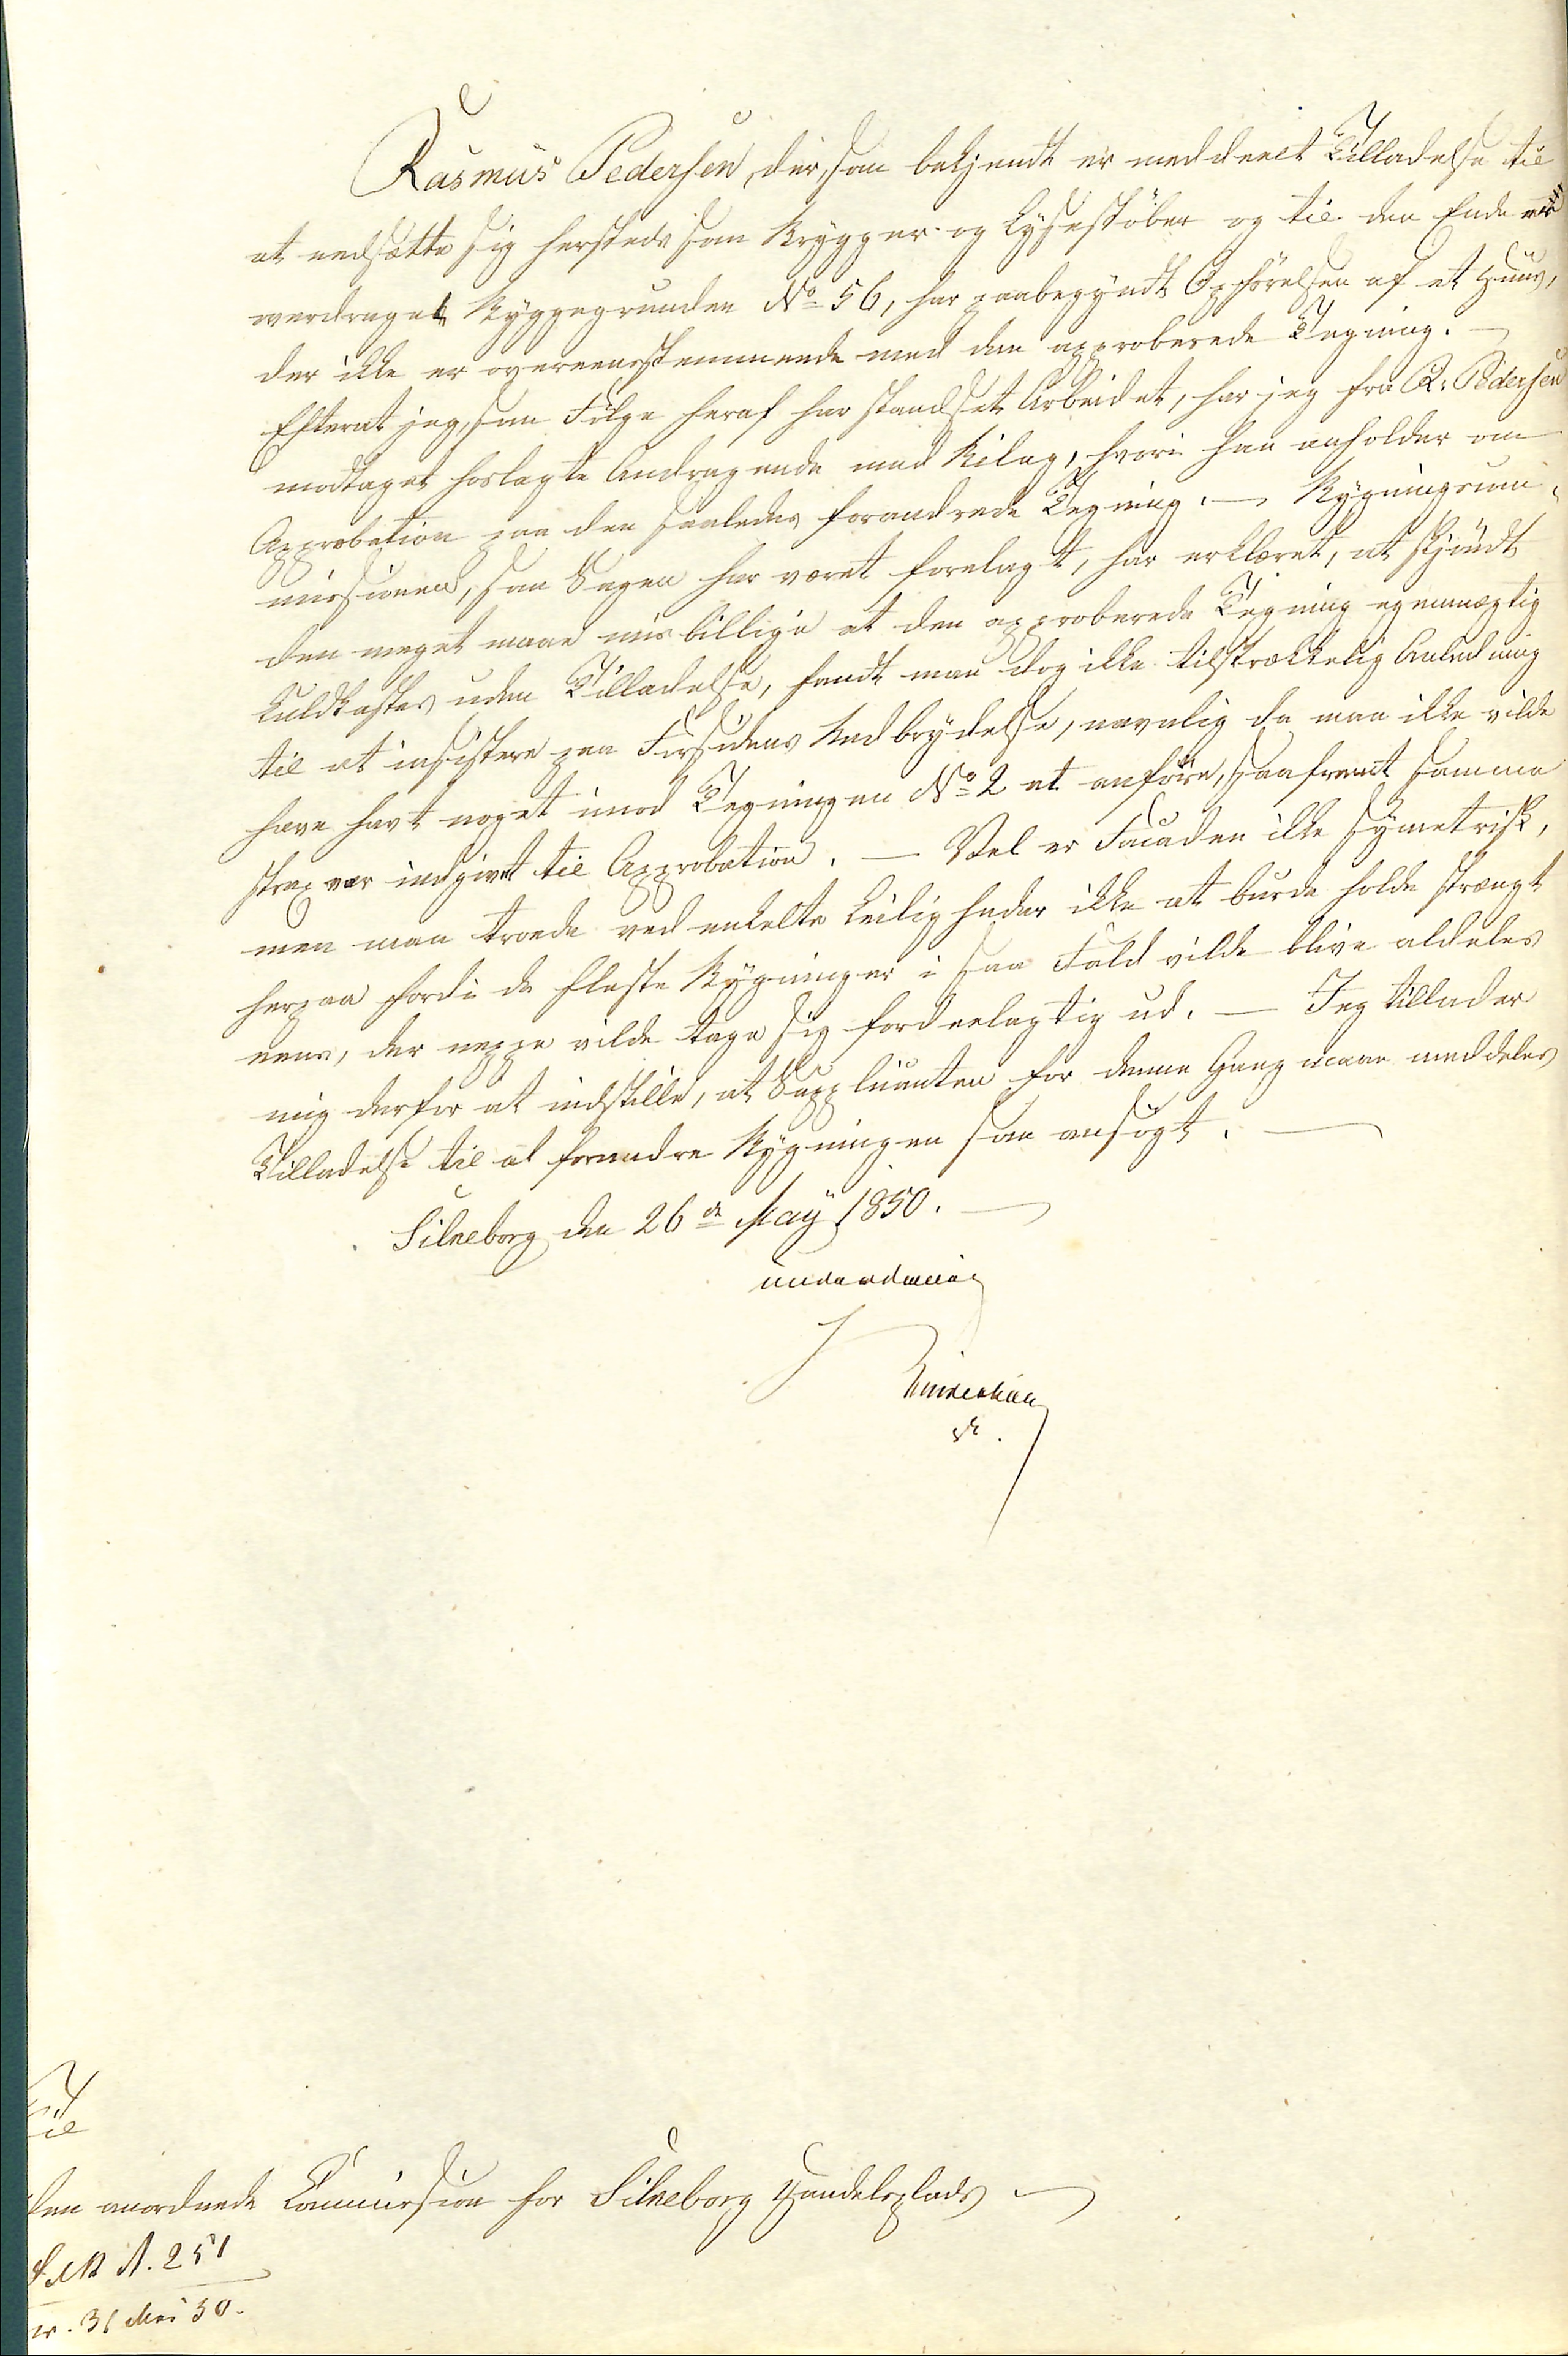 Rasmus Pedersen, der, som bekjendt er meddeelt Tilladelse til
at nedsætte sig hersteds som Brygger og Lysestøber og til den Ende er
overdraget Byggegrunden No 56, har paabegyndt Opførelsen af et Huus,
der ikke er overeensstemmende med den approberede Tegning. —
Efterat jeg, som Følge heraf har standset Arbeidet, har jeg fra R. Pedersen
modtaget hoslagte Andragende med Bilag, hvori han anholder om
Approbation paa den saaledes forandrede Tegning. — Bygningscom-
missionen, som Sagen har været forelagt, har erklæret, at skjøndt
den meget maae misbillige at den approberede Tegning egenmægtig
kuldkastes uden Tilladelse, fandt man dog ikke tilstrækkelig Anledning
til at insistere paa Forsidens Nedbrydelse, navnlig da man ikke vilde
have havt noget imod Tegningen No 2 at anføre, saafremt samme
strax var indgivet til Approbation. — Vel er Facaden ikke symetrisk,
men man troede ved enkelte Leiligheder ikke at burde holde strængt
herpaa fordi de fleste Bygninger i saa Fald vilde blive aldeles
eens, der neppe vilde tage sig fordeelagtig ud. — Jeg tillader
mig derfor at indstille, at Supplicanten for denne Gang maae meddeles
Tilladelse til at forandre Bygningen som ansøgt. —
Silkeborg den 26de May 1850. —
underdanig
Til
den anordnede Commission for Silkeborg Handelsplads —
A. 251
31 Mai 50.